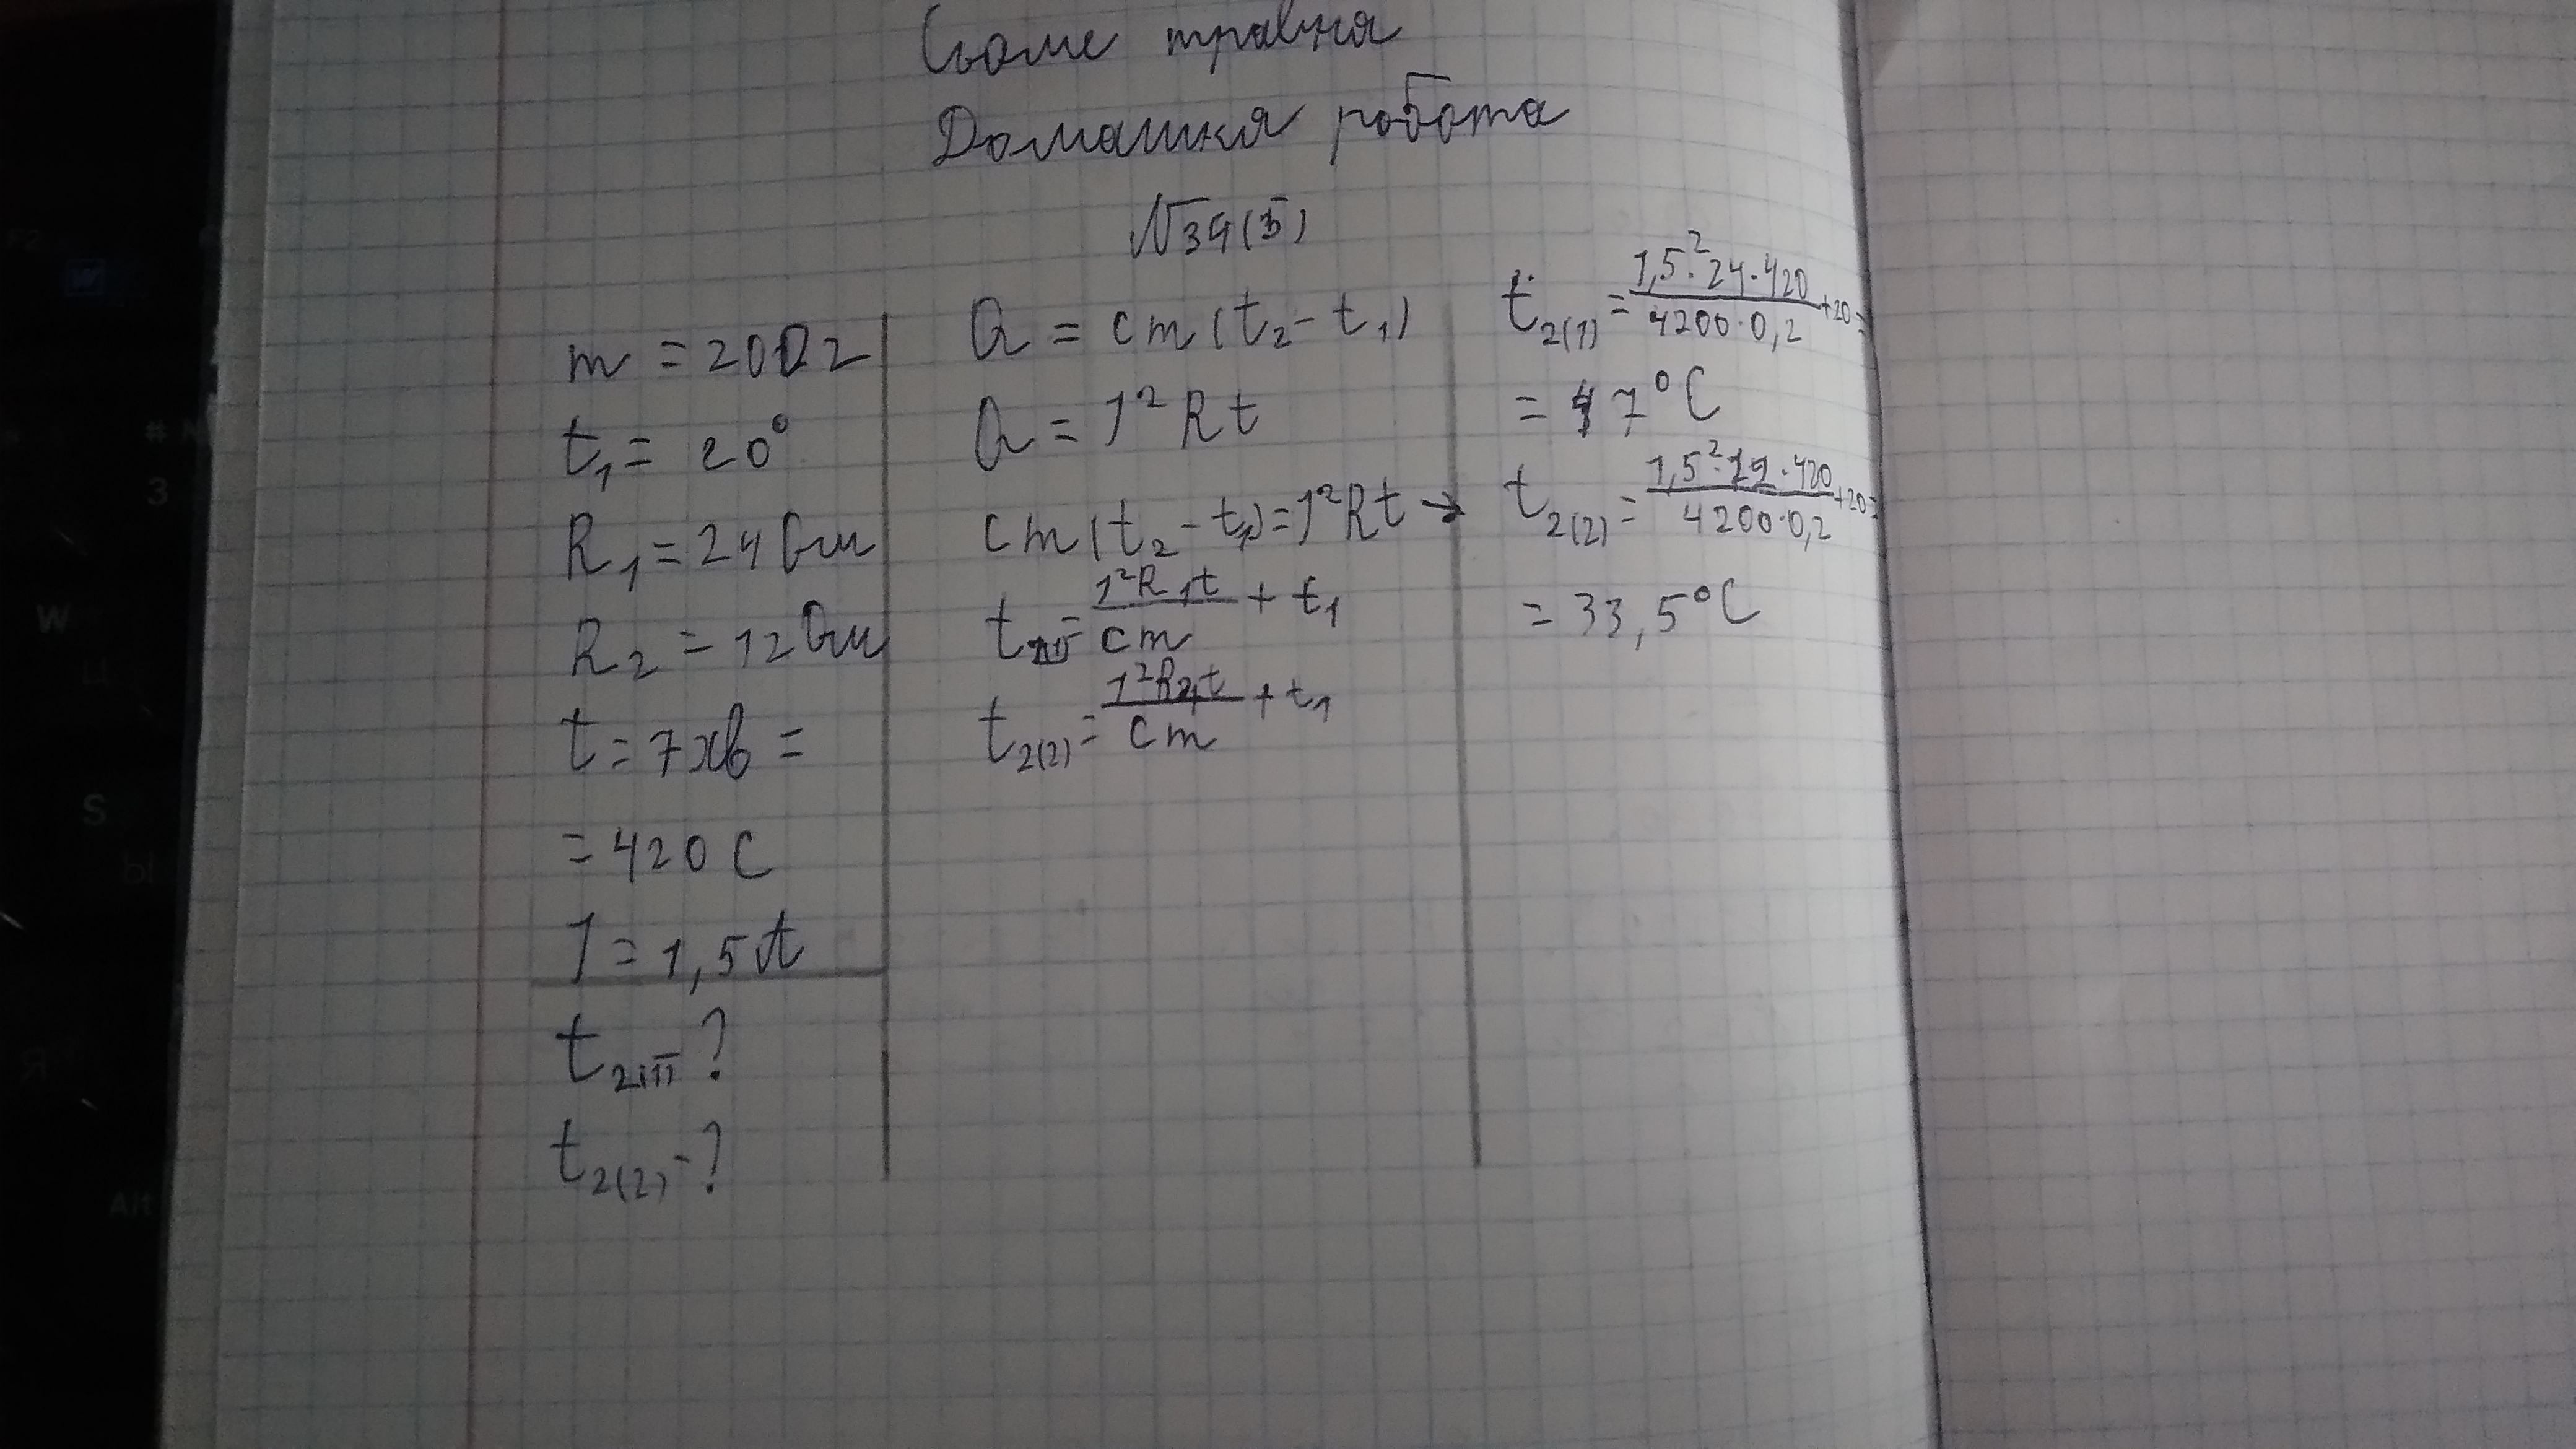 Сьоме травня
Домашня робота
№34(5)
m = 200г
t₁ = 20°
R₁ = 24 Ом
R₂ = 12 Ом
t = 7 хв =
= 420 С
I = 1,5 A
t₂₍₁₎ - ?
t₂₍₂₎ - ?
Q = cm(t₂ - t₁)
Q = I² R t
cm(t₂ - t₁) = I²Rt →
t₂₍₁₎ = I²R₁t / cm + t₁
t₂₍₂₎ = I²R₂t / cm + t₁
t₂₍₁₎ = 1,5² · 24 · 420 / 4200 · 0,2 + 20 =
= 47°C
t₂₍₂₎ = 1,5² · 12 · 420 / 4200 · 0,2 + 20 =
= 33,5°C
# 3
W
Ц
S
Ы
Я
Alt